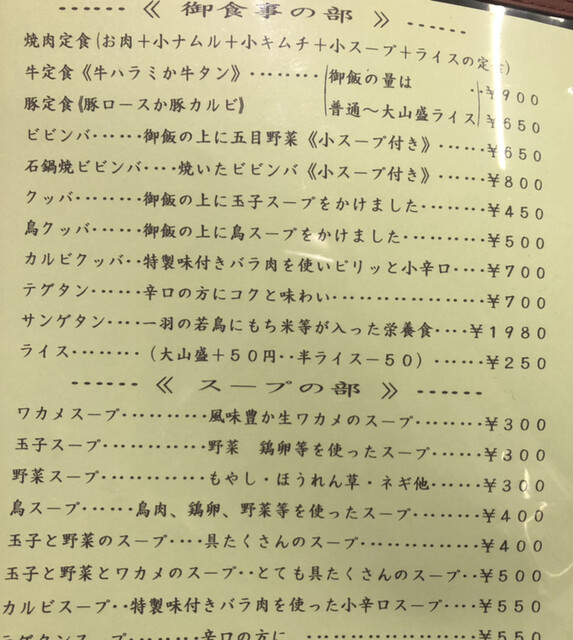 ------ 《 御食事の部 》 ------
焼肉定食(お肉＋小ナムル＋小キムチ＋小スープ＋ライスの定食)
牛定食《牛ハラミか牛タン》‥‥‥‥ 御飯の量は ‥¥900
豚定食《豚ロースか豚カルビ》 普通～大山盛ライス ¥650
ビビンバ‥‥御飯の上に五目野菜《小スープ付き》‥‥‥¥650
石鍋焼ビビンバ‥‥焼いたビビンバ《小スープ付き》‥‥‥¥800
クッパ‥‥‥御飯の上に玉子スープをかけました‥‥‥‥¥450
鳥クッパ‥‥御飯の上に鳥スープをかけました‥‥‥‥‥¥500
カルビクッパ‥特製味付きバラ肉を使いピリッと小辛口‥‥¥700
テグタン‥‥‥辛口の方にコクと味わい‥‥‥‥‥‥‥‥¥700
サンゲタン‥‥一羽の若鳥にもち米等が入った栄養食‥‥¥1980
ライス‥‥‥‥(大山盛＋50円‥半ライス－50)‥‥‥¥250
------ 《 スープの部 》 ------
ワカメスープ‥‥‥‥‥風味豊か生ワカメのスープ‥‥‥‥¥300
玉子スープ‥‥‥‥‥野菜 鶏卵等を使ったスープ‥‥‥‥¥300
野菜スープ‥‥‥‥‥‥もやし・ほうれん草・ネギ他‥‥‥¥300
鳥スープ‥‥‥鳥肉、鶏卵、野菜等を使ったスープ‥‥‥‥¥400
玉子と野菜のスープ‥‥具たくさんのスープ‥‥‥‥‥‥¥400
玉子と野菜とワカメのスープ‥とても具たくさんスープ‥‥¥500
カルビスープ‥特製味付きバラ肉を使った小辛口スープ‥‥¥550
テグタンスープ‥‥辛口の方に ‥‥‥‥‥‥‥‥‥¥550